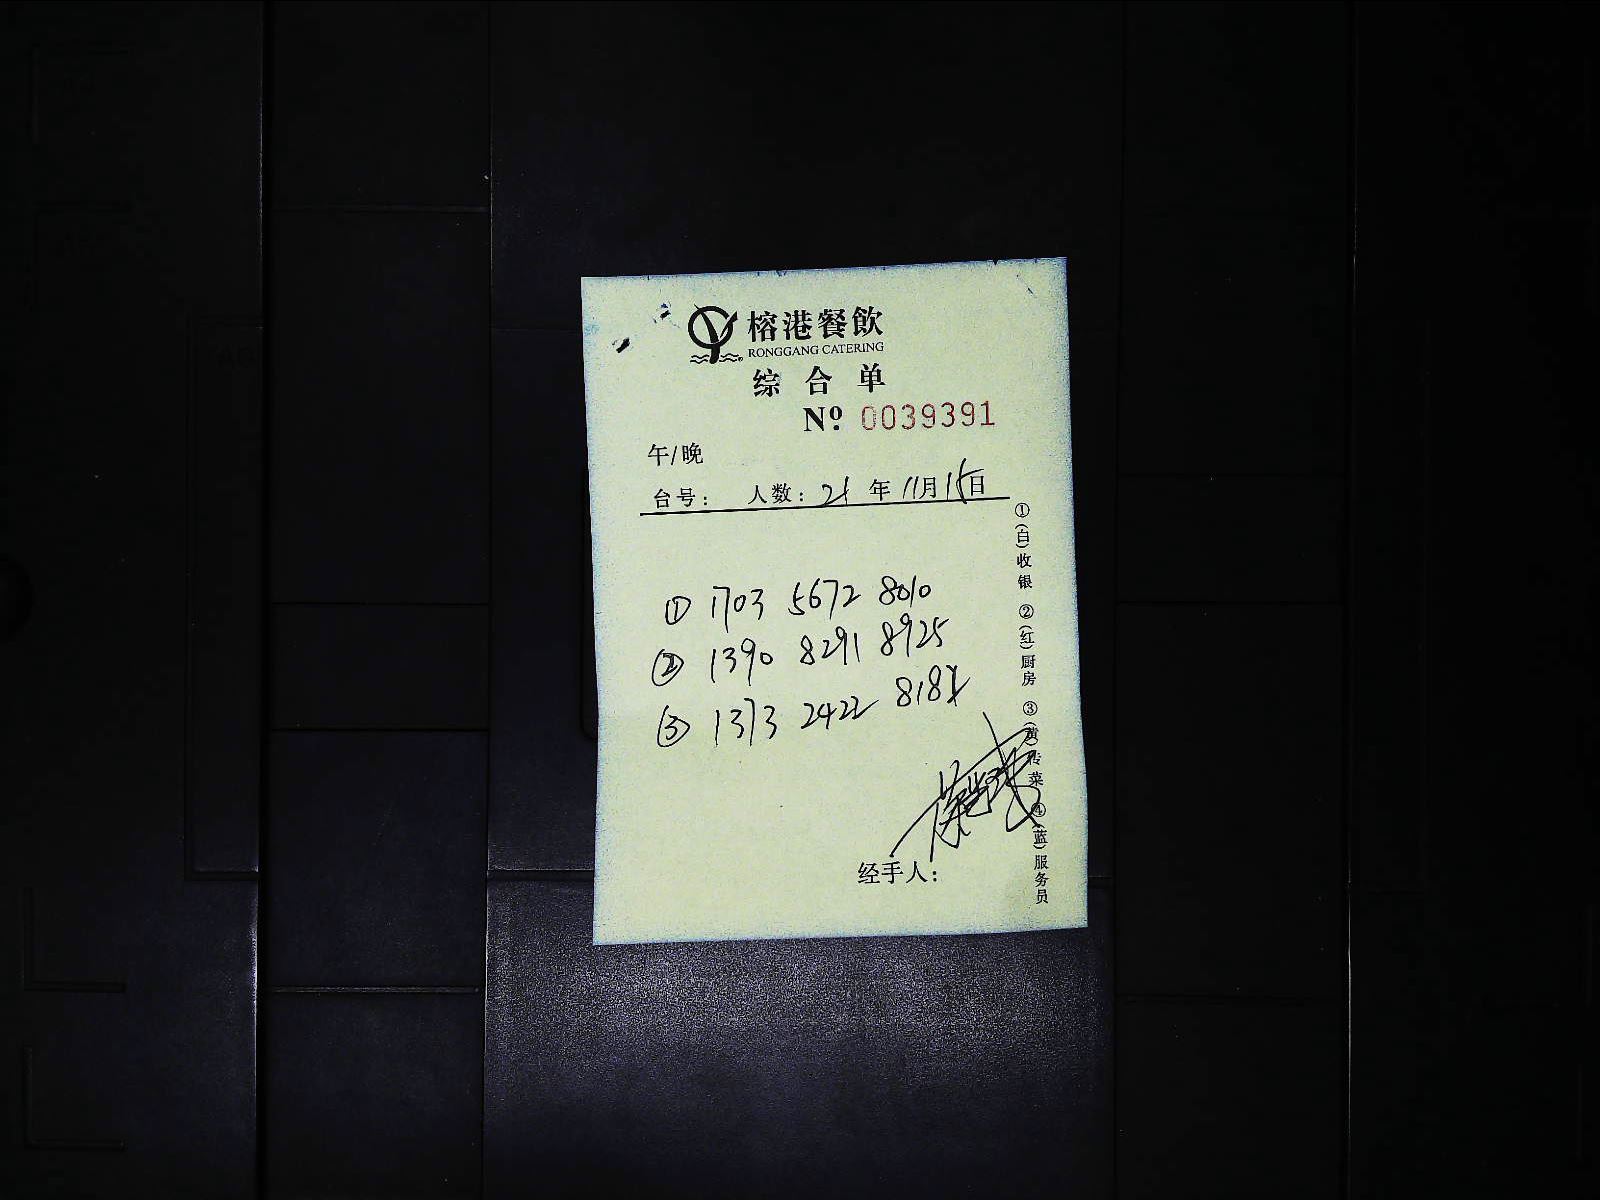 榕港餐飲
RONGGANG CATERING
综合单
Nº 0039391
午/晚
台号: 人数: 21 年 11月15日
① 1703 5672 8010
② 1390 8291 8925
③ 1373 2422 818
经手人:
①(白)收银 ②(红)厨房 ③(黄)传菜 ④(蓝)服务员